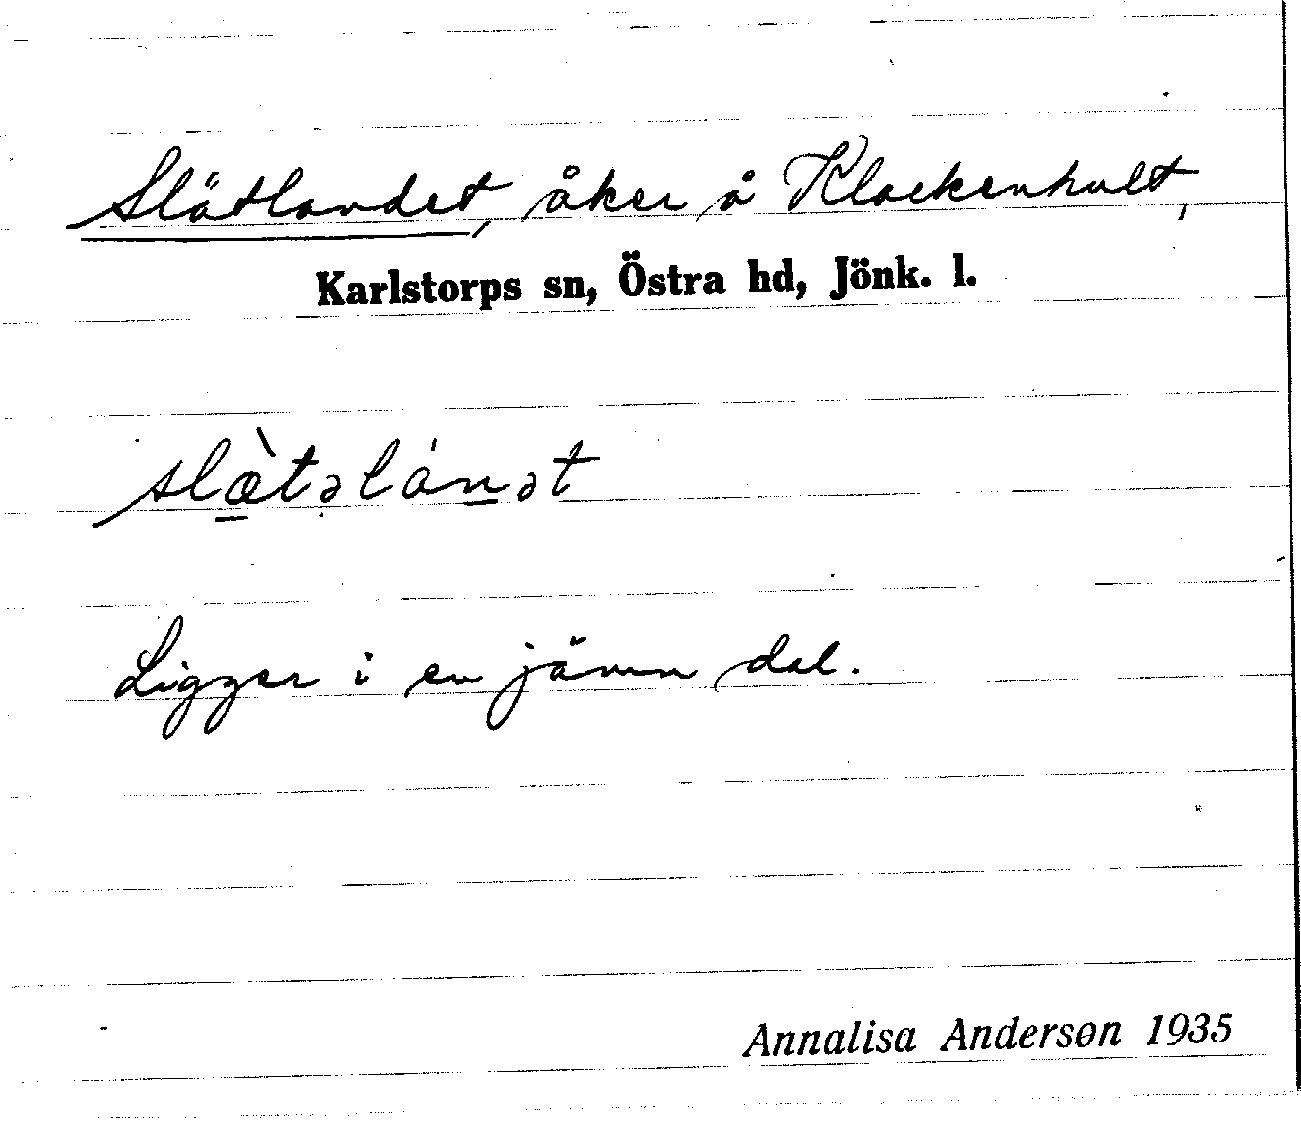 Slätlandet, åker å Klackenhult,
Karlstorps sn, Östra hd, Jönk. l.
slæ̀təlánət
Ligger i en jämn dal.
Annalisa Anderson 1935